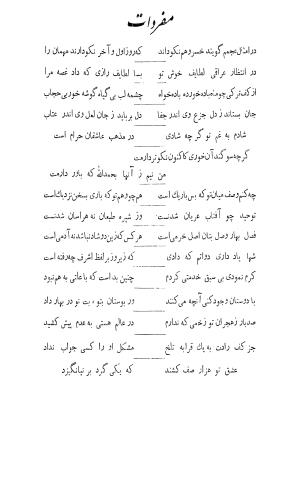 مفردات
در امثال عجم گویند خسرو هم نکو داند که روز اول و آخر نکو دارند مهمان را
در انتظار عراقی لطایف خوش تو بسا لطایف رازی که داد غصه مرا
از کف ترکی چو ماه باده خورده باده خواه چشمه لب بی گیاه گوشه خور بی حجاب
جان بستاند ز دل جزع وی اندر جفا دل برباید ز جان لعل وی اندر عتاب
شادم به غم تو گر چه شادی در مذهب عاشقان حرام است
گر چه سوگند آن خوری کاکنون نکوتر دارمت
من نیم ز آنها بحمدالله که باور دارمت
چه کنم وصف میان تو که بس باریک است هم چو هم تو که باری بسخن نزدیک است
توحید چو آفتاب عریان شدنست وز شیره طلیمان نه هراسان شدنست
فصل بهار وصل بتان اصل خرمی است هر کس که زین دو شاد نباشد نه آدمی است
شها یاد داری دواتم که دادی که زیر و زبر لفظ اشرف چه رفته است
کرم نمودی بی سبق خدمتی کردم چنین بد است که با عاتی به هم نبود
با دوستان وجود کنی آنچه می کند در بوستان بنوبت تو در بهار داد
صد بار ز هجران تو زخمی که ندارم در عالم هستی به عدم پیش کشید
جز کف رادت به یک قرابه تلخ مشکل او را کسی جواب نداد
عشق تو هزار صف کشند که یکی گرد بر نیانگیزد